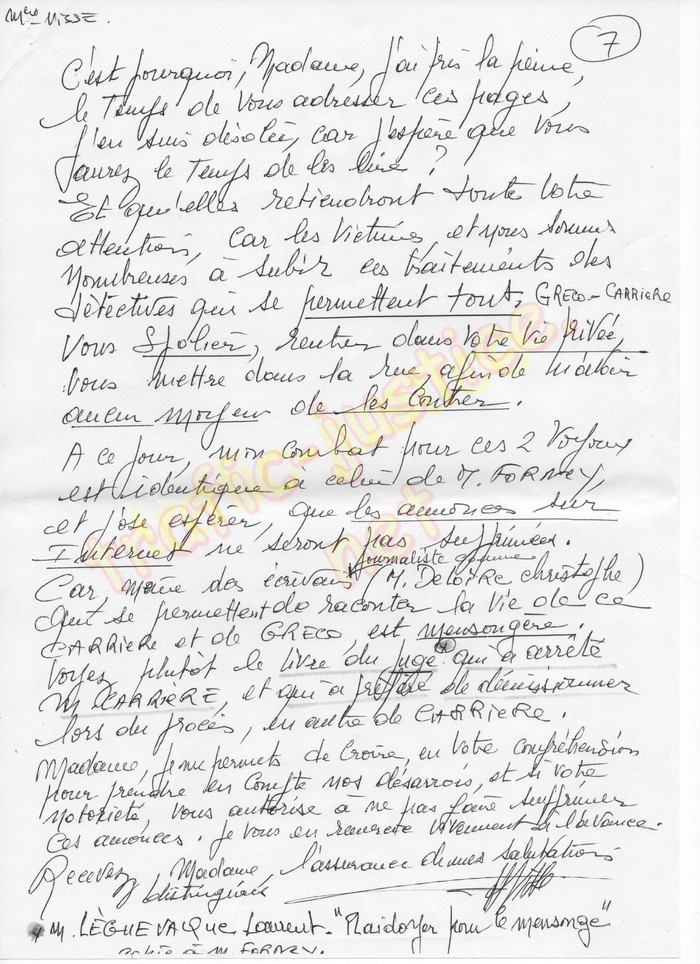 Mme NISSE.
7
C'est pourquoi, Madame, j'ai pris la peine,
le Temps de vous adresser ces pages,
J'en suis désolée, car j'espère que vous
aurez le Temps de les lire ?
Et qu'elles retiendront toute votre
attention, car les victimes, et nous sommes
Nombreuses à subir ces traitements des
détectives qui se permettent tout, GRECO - CARRIERE
Vous Spolier, rentrer dans votre vie privée,
Vous mettre dans la rue, afin de n'avoir
aucun moyen de les contrer.
A ce jour, mon combat pour ces 2 Voyous
est identique à celui de M. FORNEY,
et j'ose espérer, que les annonces sur
Internet ne seront pas supprimées.
journaliste comme
Car, même des écrivains (M. DELOIRE Christophe)
Qui se permettent de raconter la vie de ce
CARRIERE et de GRECO, est mensongère.
Voyez plutôt le livre du juge qui a arrêté
M. CARRIERE, et qui a préféré de démissionner
lors du procès, en autre de CARRIERE.
Madame, je me permets de croire, en votre compréhension
pour prendre en compte nos désarrois, et si votre
Notoriété, vous autorise à ne pas faire supprimer
ces annonces. Je vous en remercie vivement à l'avance.
Recevez, Madame, l'assurance de mes salutations
distinguées
* M. LÈGUEVAQUE Laurent. "Plaidoyer pour le mensonge"
à M. FORNEY.
Trafic-Justice
net